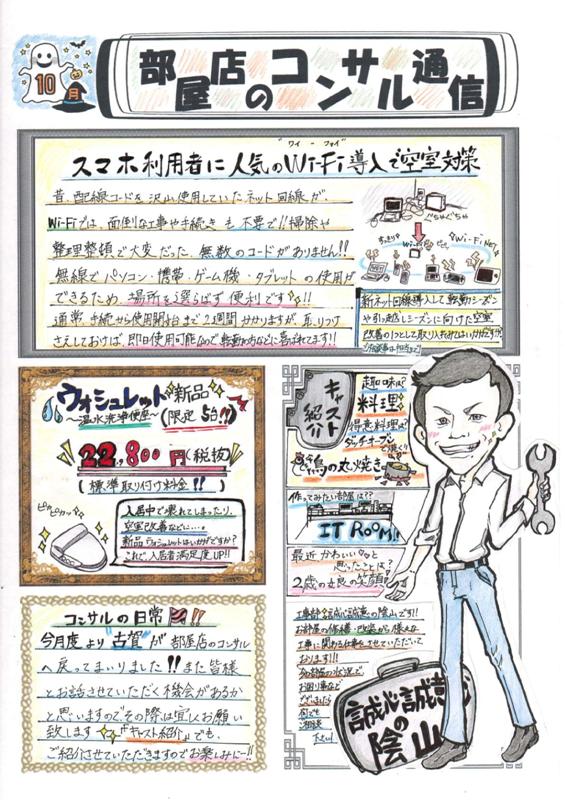 10月
部屋店のコンサル通信
"ワイーファイ"
スマホ利用者に人気のWi-Fi導入で空室対策
昔、配線コードを沢山使用していたネット回線が、
Wi-Fiでは、面倒な工事や手続きも不要で!!掃除や
整理整頓で大変だった、無数のコードがありません!!
無線でパソコン・携帯・ゲーム機・タブレットの使用が
できるため、場所を選らばず便利です!!
通常、手続から使用開始まで2週間かかりますが、取りつけ
さえしておけば、即日使用可能なので転勤の方などに喜ばれてます!!
ぐちゃぐちゃ
すっきり
Wi-Fi
Wi-Fi NET
新ネット回線導入して、転勤シーズン
や引っ越しシーズンに向けた空室
改善の1つとして取り入れてみてはいかがですか?
ウォシュレット新品
〜温水洗浄便座〜(限定5台!!)
22,800円(税抜)
(標準取り付け料金!!)
ピカピカッ
入居中で壊れてしまったり、
空室改善などに…。
新品ウォシュレットはいかがですか?
これで、入居者満足度UP!!
キャスト紹介
趣味は?
料理
得意料理は?
ダッチオーブンで焼く
鶏の丸焼き
作ってみたい部屋は??
IT ROOM!!
最近かわいい♡と
思ったことは?
2歳の女の子の笑顔
工事部の誠心誠意の陰山です!!
お部屋の修繕・改装から様々な
工事に関わる仕事をさせていただいて
おります!!!
お部屋の状況で
お困り事など
ございましたら
何でも
ご相談
下さい!
誠心誠意の陰山
コンサルの日常!!
今月度より"古賀"が部屋店のコンサル
へ戻ってまいりました!!また皆様
とお話させていただく機会があるか
と思いますので、その際は宜しくお願い
致します 『キャスト紹介』でも、
ご紹介させていただきますのでお楽しみに…!!